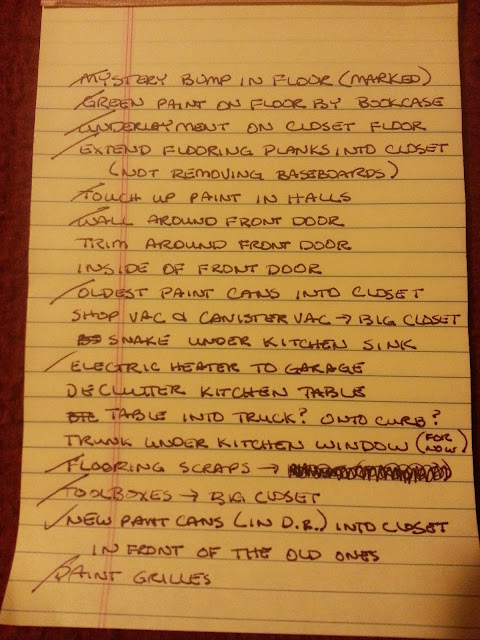 MYSTERY BUMP IN FLOOR (MARKED)
GREEN PAINT ON FLOOR BY BOOKCASE
UNDERLAYMENT ON CLOSET FLOOR
EXTEND FLOORING PLANKS INTO CLOSET
(NOT REMOVING BASEBOARDS)
TOUCH UP PAINT IN HALLS
WALL AROUND FRONT DOOR
TRIM AROUND FRONT DOOR
INSIDE OF FRONT DOOR
OLDEST PAINT CANS INTO CLOSET
SHOP VAC & CANISTER VAC → BIG CLOSET
SNAKE UNDER KITCHEN SINK
ELECTRIC HEATER TO GARAGE
DECLUTTER KITCHEN TABLE
TABLE INTO TRUCK? ONTO CURB?
TRUNK UNDER KITCHEN WINDOW (FOR NOW)
FLOORING SCRAPS →
TOOLBOXES → BIG CLOSET
NEW PAINT CANS (IN D.R.) INTO CLOSET
IN FRONT OF THE OLD ONES
PAINT GRILLES